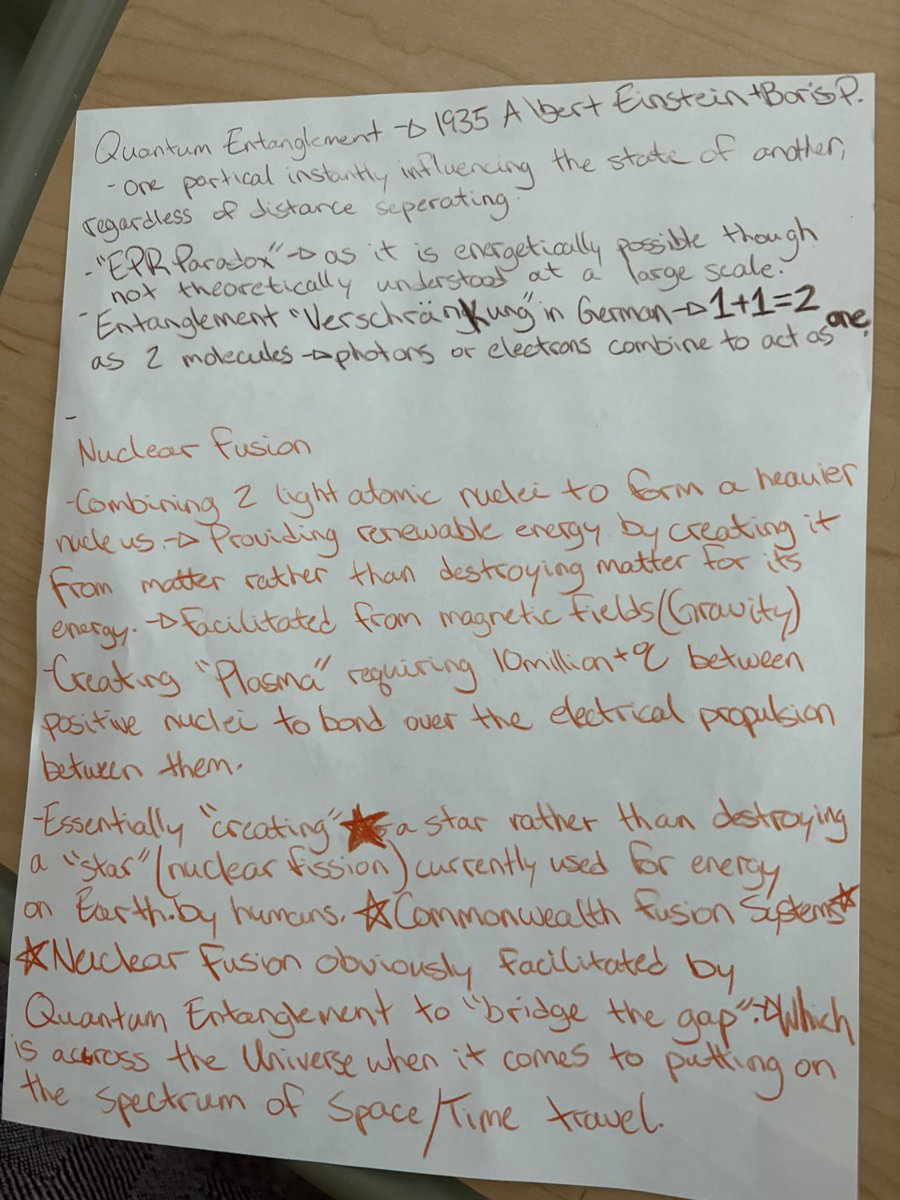 Quantum Entanglement → 1935 Albert Einstein + Boris P.
- one partical instantly influencing the state of another,
regardless of distance seperating.
- "EPR Paradox" → as it is energetically possible though
not theoretically understood at a large scale.
- Entanglement "Verschränkung" in German → 1+1=2
as 2 molecules → photons or electrons combine to act as one.
-
Nuclear Fusion
- Combining 2 light atomic nuclei to form a heavier
nucleus. → Providing renewable energy by creating it
from matter rather than destroying matter for its
energy. → Facilitated from magnetic fields (Gravity)
- Creating "Plasma" requiring 10million+ °C between
positive nuclei to bond over the electrical propulsion
between them.
- Essentially "creating" ★ a star rather than destroying
a "star" (nuclear fission) currently used for energy
on Earth. by humans. ☆ Commonwealth Fusion Systems ☆
☆ Nuclear Fusion obviously facilitated by
Quantum Entanglement to "bridge the gap". → Which
is accross the Universe when it comes to putting on
the spectrum of Space/Time travel.